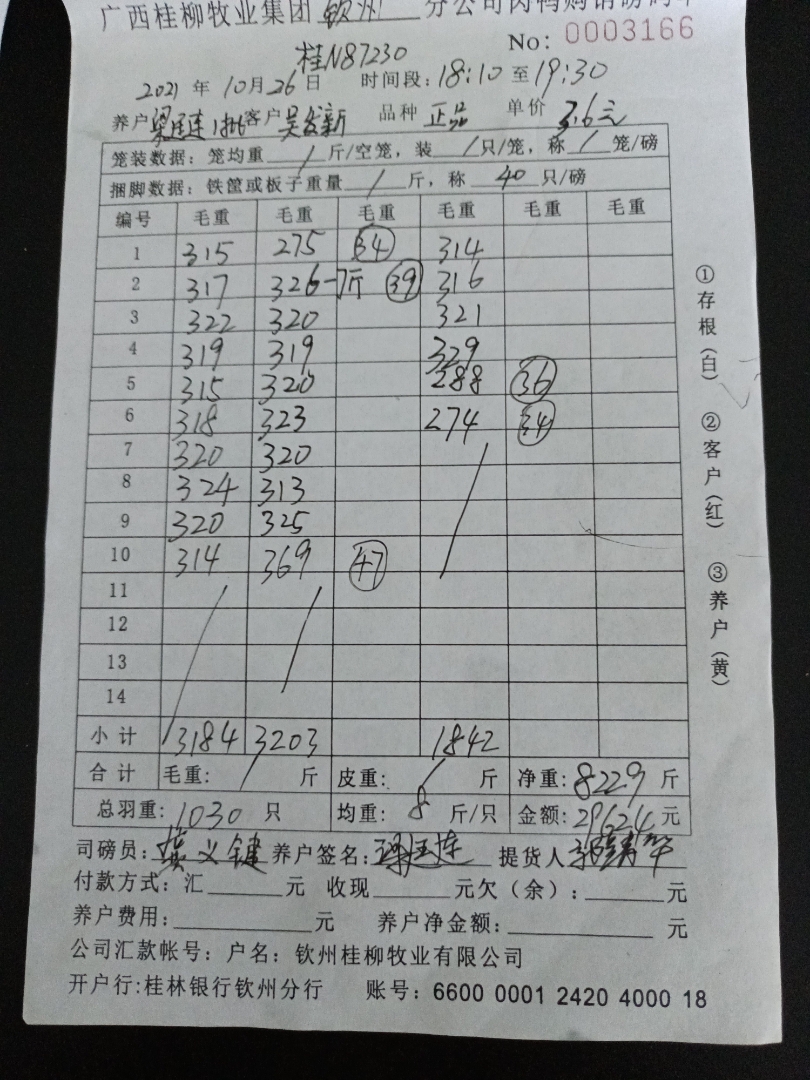 广西桂柳牧业集团 钦州 分公司肉鸭购销磅码单
桂N87230 No: 0003166
2021 年 10 月 26 日 时间段: 18:10 至 19:30
养户 客户 吴发新 品种 正品 单价 3.6元
笼装数据: 笼均重 / 斤/空笼, 装 / 只/笼, 称 / 笼/磅
捆脚数据: 铁筐或板子重量 / 斤, 称 40 只/磅
编号 毛重 毛重 毛重 毛重 毛重 毛重
1 315 275 34 314
2 317 326-7斤 39 316
3 322 320 321
4 319 319 329
5 315 320 288 36
6 318 323 274 34
7 320 320
8 324 313
9 320 325
10 314 369 47
11
12
13
14
小计 3184 3203 1842
合计 毛重: / 斤 皮重: / 斤 净重: 8229 斤
总羽重: 1030 只 均重: 8 斤/只 金额: 29624 元
司磅员: 义键 养户签名: 提货人
付款方式: 汇 元 收现 元欠(余): 元
养户费用: 元 养户净金额: 元
公司汇款帐号: 户名: 钦州桂柳牧业有限公司
开户行:桂林银行钦州分行 账号: 6600 0001 2420 4000 18
①存根(白) ②客户(红) ③养户(黄)